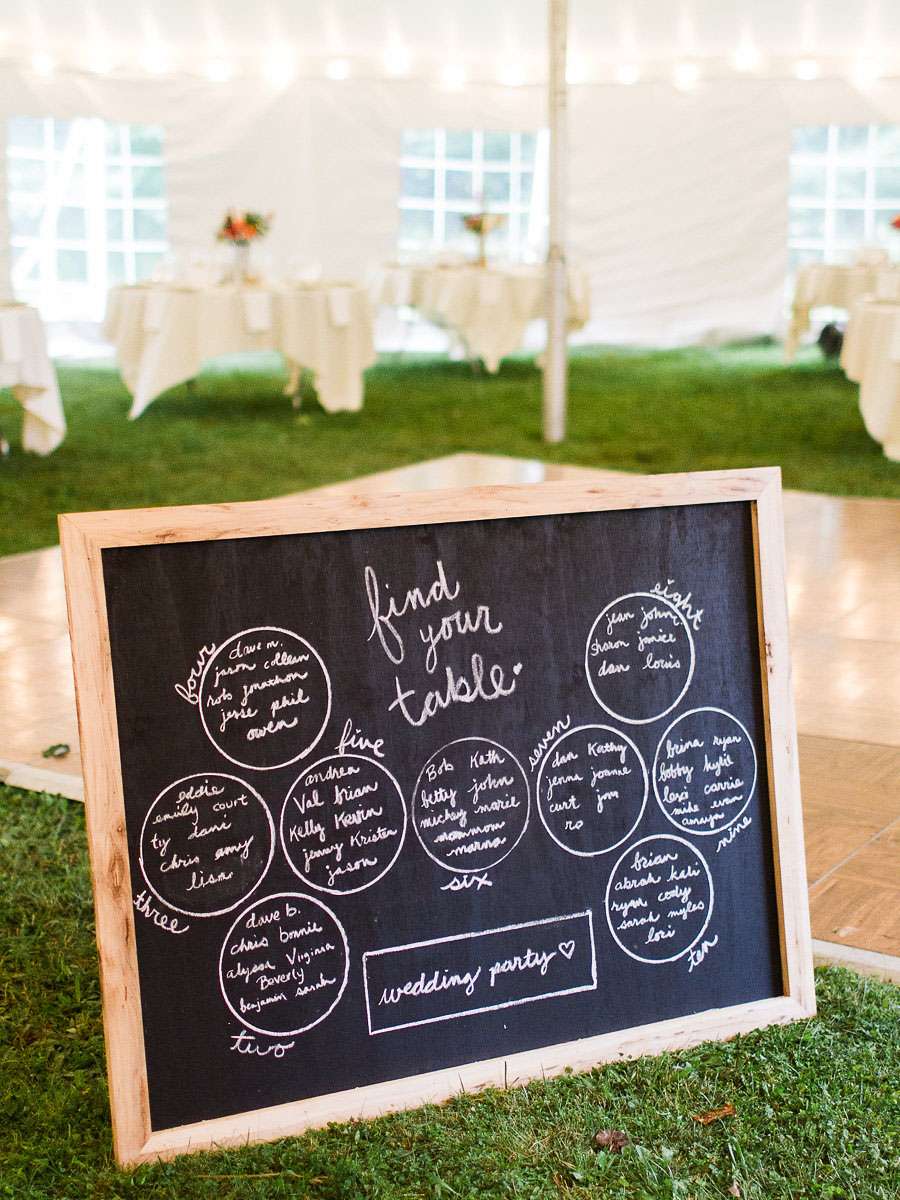 find
your
table
four
dave m.
jason colleen
rob jonathon
jesse phil
owen
eight
jean john
sharon janice
dan louis
five
andrea
Val brian
Kelly Kevin
jenny Kristen
jason
Bob Kath
betty john
mickey marie
mommom
marna
six
seven
dan Kathy
jenna joanne
curt jom
ro
brina ryan
bobby kylie
lexi carrie
mike evan
amaya
nine
eddie
emily court
ty dani
chris amy
lisa
three
dave b.
chris bonnie
alyssa Virginia
Beverly
benjamin sarah
two
brian
abrah kali
ryan cody
sarah myles
lori
ten
wedding party ♡